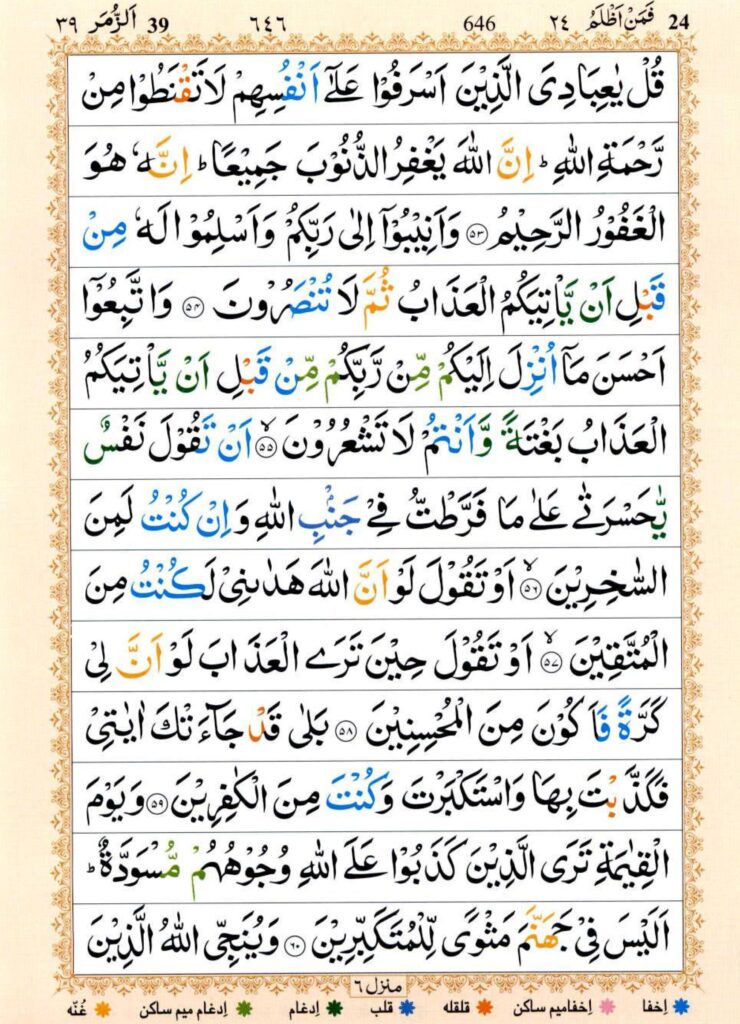 24 فَمَنْ اَظْلَمُ ٢٤ 646 ٦٤٦ 39 اَلزُّمَر ٣٩
قُلْ يٰعِبَادِىَ الَّذِيْنَ اَسْرَفُوْا عَلٰٓى اَنْفُسِهِمْ لَا تَقْنَطُوْا مِنْ
رَّحْمَةِ اللّٰهِ ؕ اِنَّ اللّٰهَ يَغْفِرُ الذُّنُوْبَ جَمِيْعًا ؕ اِنَّهٗ هُوَ
الْغَفُوْرُ الرَّحِيْمُ ۝٥٣ وَاَنِيْبُوْۤا اِلٰى رَبِّكُمْ وَاَسْلِمُوْا لَهٗ مِنْ
قَبْلِ اَنْ يَّاْتِيَكُمُ الْعَذَابُ ثُمَّ لَا تُنْصَرُوْنَ ۝٥٤ وَاتَّبِعُوْۤا
اَحْسَنَ مَاۤ اُنْزِلَ اِلَيْكُمْ مِّنْ رَّبِّكُمْ مِّنْ قَبْلِ اَنْ يَّاْتِيَكُمُ
الْعَذَابُ بَغْتَةً وَّاَنْتُمْ لَا تَشْعُرُوْنَ ۝٥٥ۙ اَنْ تَقُوْلَ نَفْسٌ
يّٰحَسْرَتٰى عَلٰى مَا فَرَّطْتُّ فِىْ جَنْۢبِ اللّٰهِ وَاِنْ كُنْتُ لَمِنَ
السّٰخِرِيْنَ ۝٥٦ۙ اَوْ تَقُوْلَ لَوْ اَنَّ اللّٰهَ هَدٰىنِىْ لَكُنْتُ مِنَ
الْمُتَّقِيْنَ ۝٥٧ۙ اَوْ تَقُوْلَ حِيْنَ تَرَى الْعَذَابَ لَوْ اَنَّ لِىْ
كَرَّةً فَاَكُوْنَ مِنَ الْمُحْسِنِيْنَ ۝٥٨ بَلٰى قَدْ جَآءَتْكَ اٰيٰتِىْ
فَكَذَّبْتَ بِهَا وَاسْتَكْبَرْتَ وَكُنْتَ مِنَ الْكٰفِرِيْنَ ۝٥٩ وَيَوْمَ
الْقِيٰمَةِ تَرَى الَّذِيْنَ كَذَبُوْا عَلَى اللّٰهِ وُجُوْهُهُمْ مُّسْوَدَّةٌ ؕ
اَلَيْسَ فِىْ جَهَنَّمَ مَثْوًى لِّلْمُتَكَبِّرِيْنَ ۝٦٠ وَيُنَجِّى اللّٰهُ الَّذِيْنَ
منزل ٦
اِخفا اِخفامیم ساکن قلقله قلب اِدغام اِدغام میم ساکن غُنّه